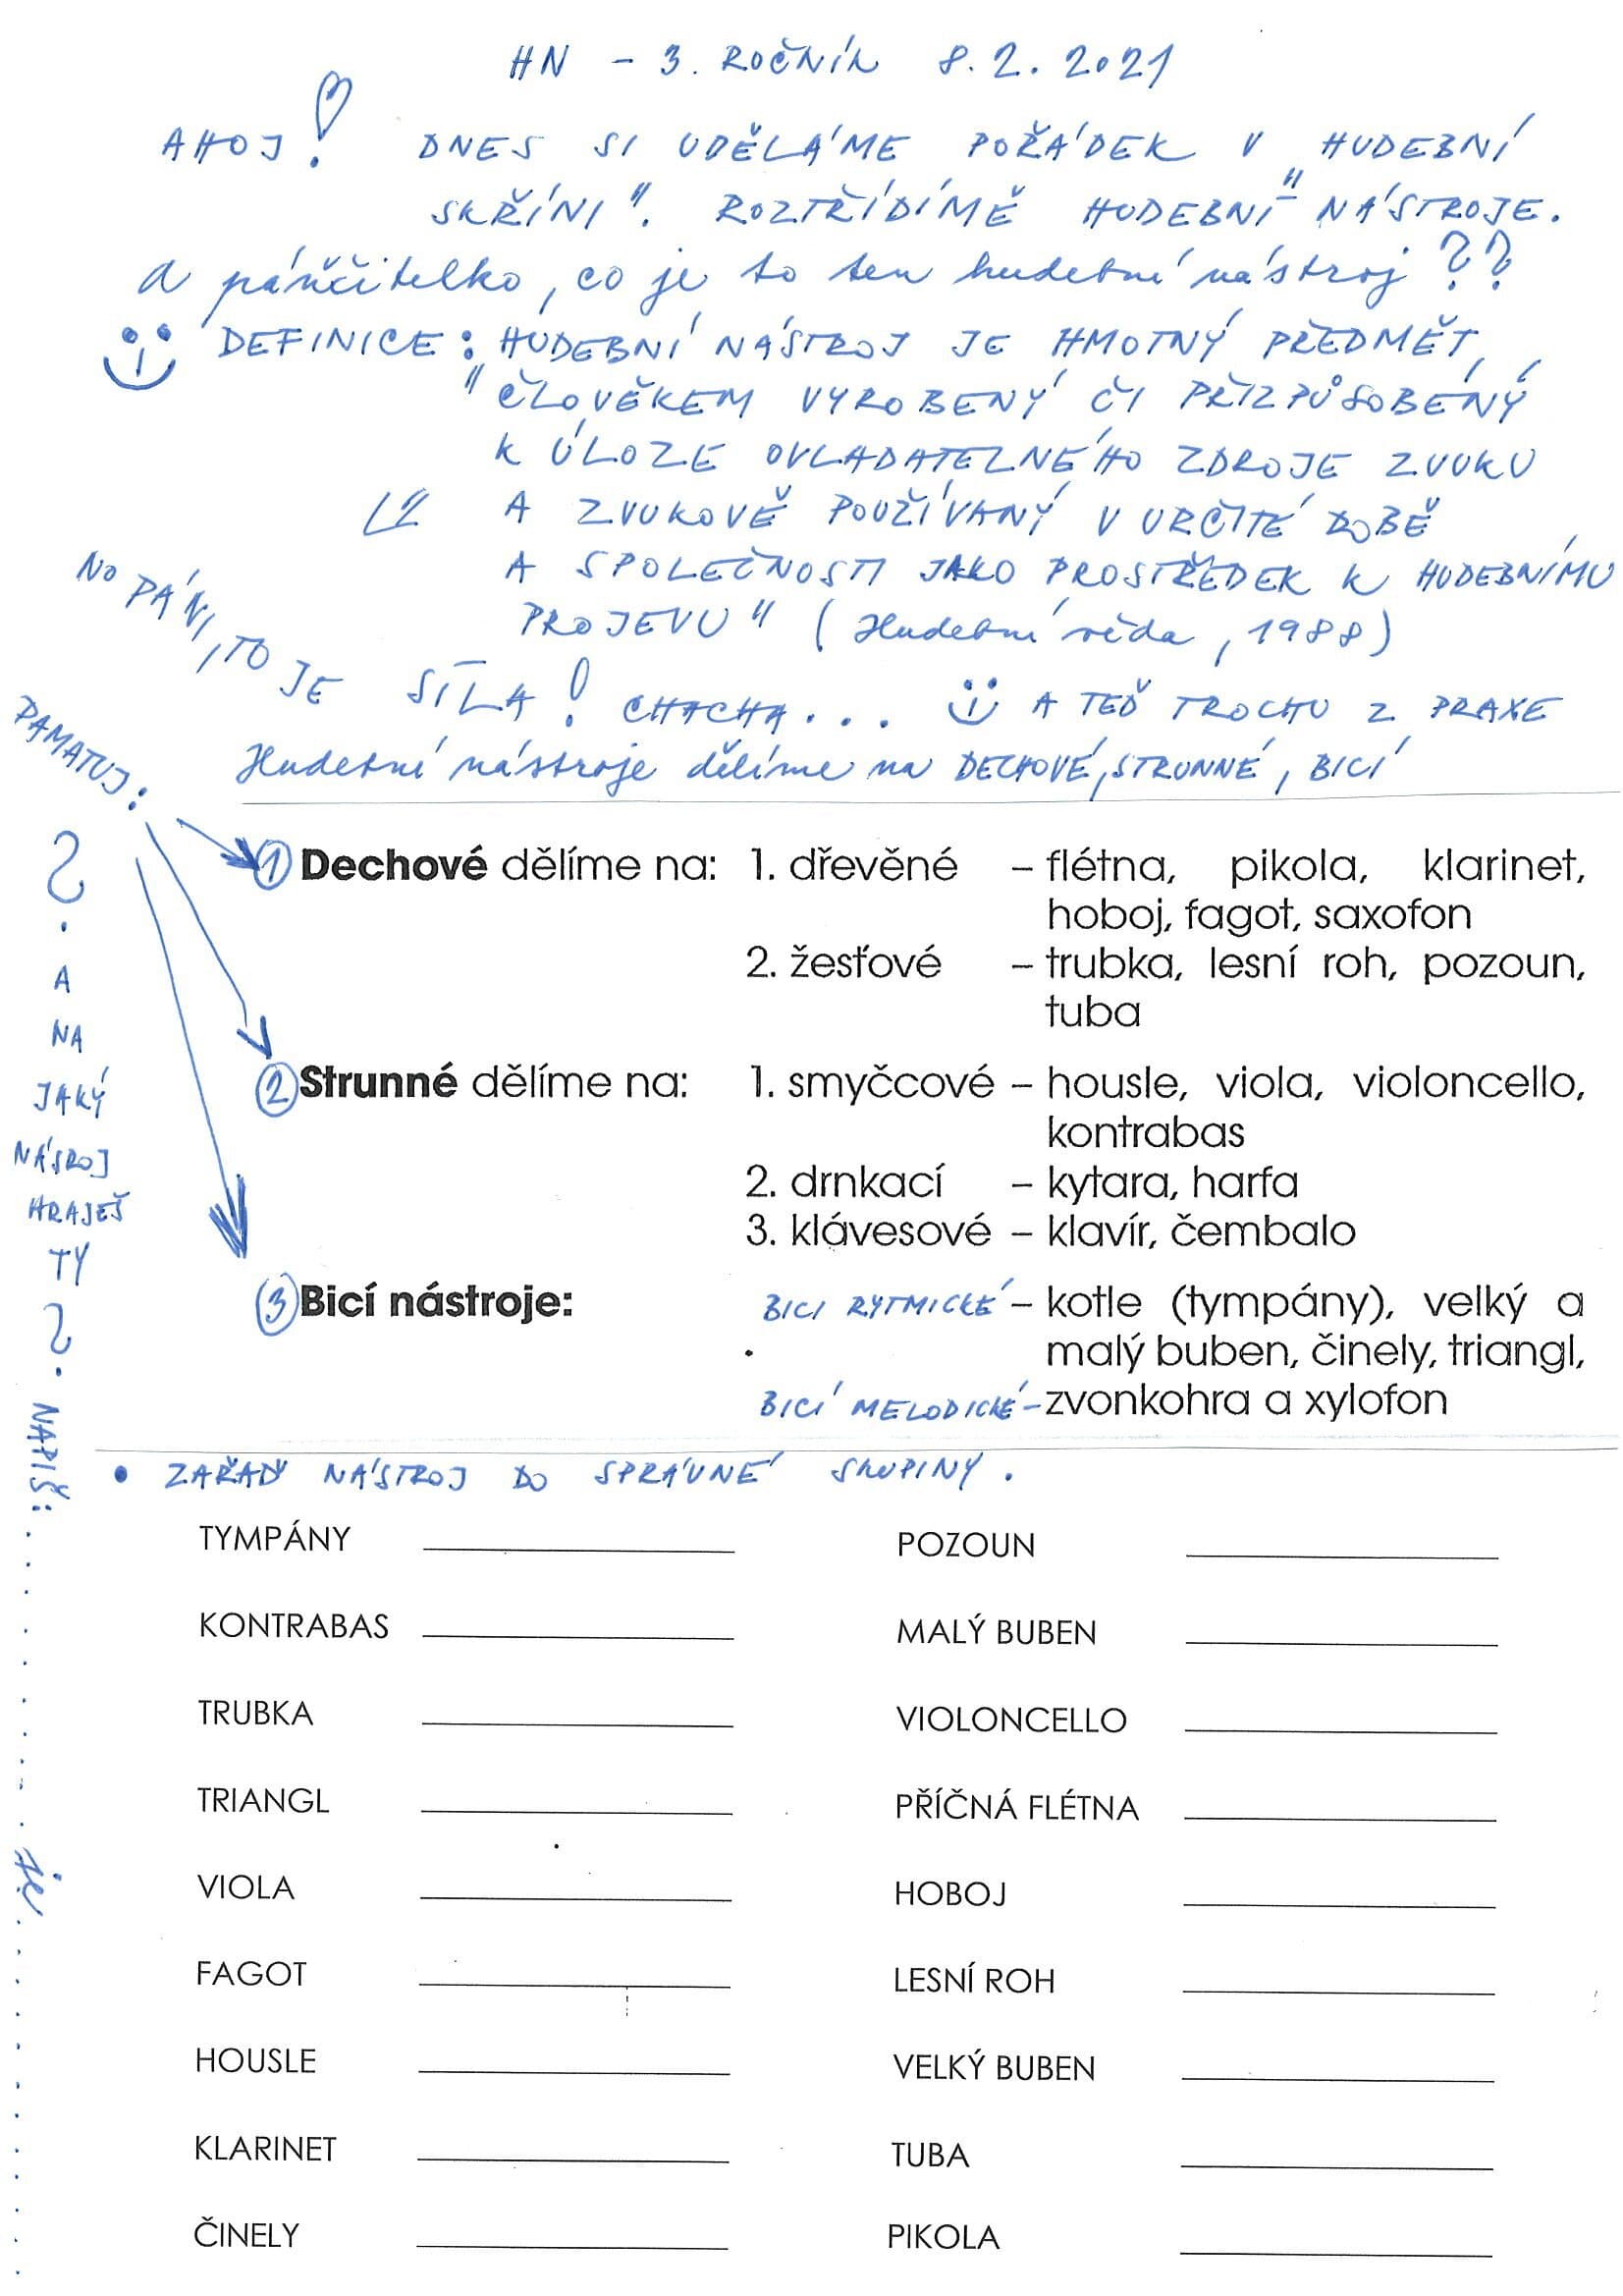 HN - 3. ROČNÍK 8.2.2021
AHOJ! DNES SI UDĚLÁME POŘÁDEK V „HUDEBNÍ
SKŘÍNI". ROZTŘÍDÍMĚ HUDEBNÍ NÁSTROJE.
A pančitelko, co je to ten hudební nástroj??
DEFINICE: „HUDEBNÍ NÁSTROJ JE HMOTNÝ PŘEDMĚT,
ČLOVĚKEM VYROBENÝ ČI PŘIZPŮSOBENÝ
K ÚLOZE OVLADATELNÉHO ZDROJE ZVUKU
A ZVUKOVĚ POUŽÍVANÝ V URČITÉ DOBĚ
A SPOLEČNOSTI JAKO PROSTŘEDEK K HUDEBNÍMU
PROJEVU" (Hudební věda, 1988)
NO PÁNI, TO JE SÍLA! CHACHA... A TEĎ TROCHU Z PRAXE
PAMATUJ:
Hudební nástroje dělíme na DECHOVÉ, STRUNNÉ, BICÍ
1 Dechové dělíme na: 1. dřevěné – flétna, pikola, klarinet,
hoboj, fagot, saxofon
2. žesťové – trubka, lesní roh, pozoun,
tuba
2 Strunné dělíme na: 1. smyčcové – housle, viola, violoncello,
kontrabas
2. drnkací – kytara, harfa
3. klávesové – klavír, čembalo
3 Bicí nástroje: BICI RYTMICKÉ – kotle (tympány), velký a
malý buben, činely, triangl,
BICÍ MELODICKÉ – zvonkohra a xylofon
?
A
NA
JAKÝ
NÁSROJ
HRAJEŠ
TY
?
NAPIŠ: .............. je ..............
• ZAŘAĎ NÁSTROJ DO SPRÁVNÉ SKUPINY.
TYMPÁNY ____ POZOUN ____
KONTRABAS ____ MALÝ BUBEN ____
TRUBKA ____ VIOLONCELLO ____
TRIANGL ____ PŘÍČNÁ FLÉTNA ____
VIOLA ____ HOBOJ ____
FAGOT ____ LESNÍ ROH ____
HOUSLE ____ VELKÝ BUBEN ____
KLARINET ____ TUBA ____
ČINELY ____ PIKOLA ____